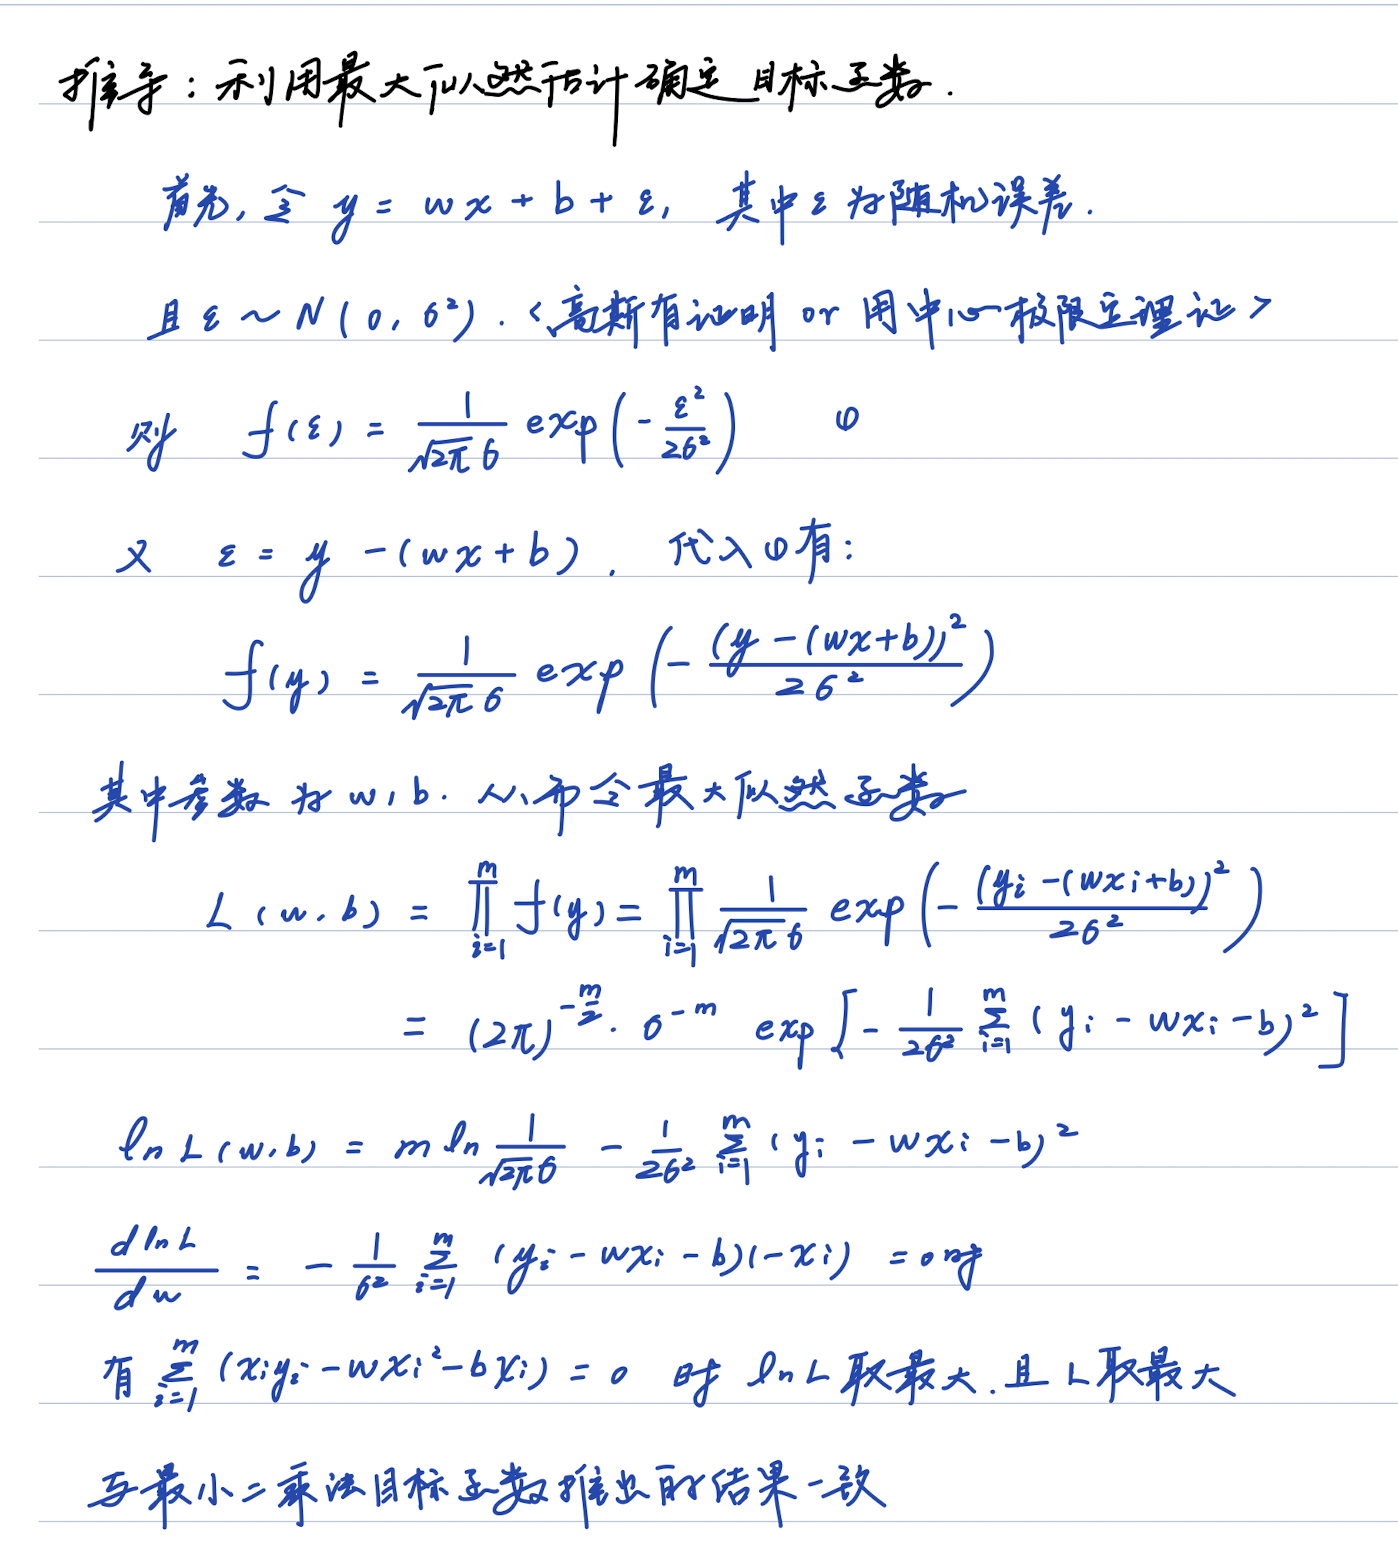 推导：利用最大似然估计确定目标函数.
首先, 令 y = wx + b + ε, 其中 ε 为随机误差.
且 ε ~ N(0, σ²). <高斯有证明 or 用中心极限定理证>
则 f(ε) = 1/(√2π σ) exp(-ε²/2σ²) ①
又 ε = y -(wx+b). 代入①有:
f(y) = 1/(√2π σ) exp(-(y-(wx+b))²/2σ²)
其中参数为 w, b. 从而令最大似然函数
L(w,b) = ∏_{i=1}^{m} f(y) = ∏_{i=1}^{m} 1/(√2π σ) exp(-(y_i-(wx_i+b))²/2σ²)
= (2π)^{-m/2} · σ^{-m} exp[-1/2σ² ∑_{i=1}^{m} (y_i - wx_i - b)²]
ln L(w,b) = m ln 1/(√2π σ) - 1/2σ² ∑_{i=1}^{m} (y_i - wx_i - b)²
d ln L/dw = - 1/σ² ∑_{i=1}^{m} (y_i - wx_i - b)(-x_i) = 0 时
有 ∑_{i=1}^{m} (x_i y_i - wx_i² - bx_i) = 0 时 ln L 取最大. 且 L 取最大
与最小二乘法目标函数推出的结果一致